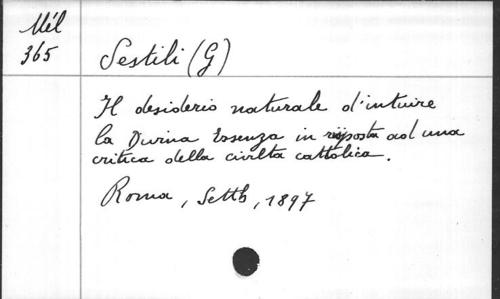 Mél
365
Sestili (G)
Il desiderio naturale d'intuire
la Divina Essenza in risposta ad una
critica della civilta cattolica.
Roma, Settb, 1897